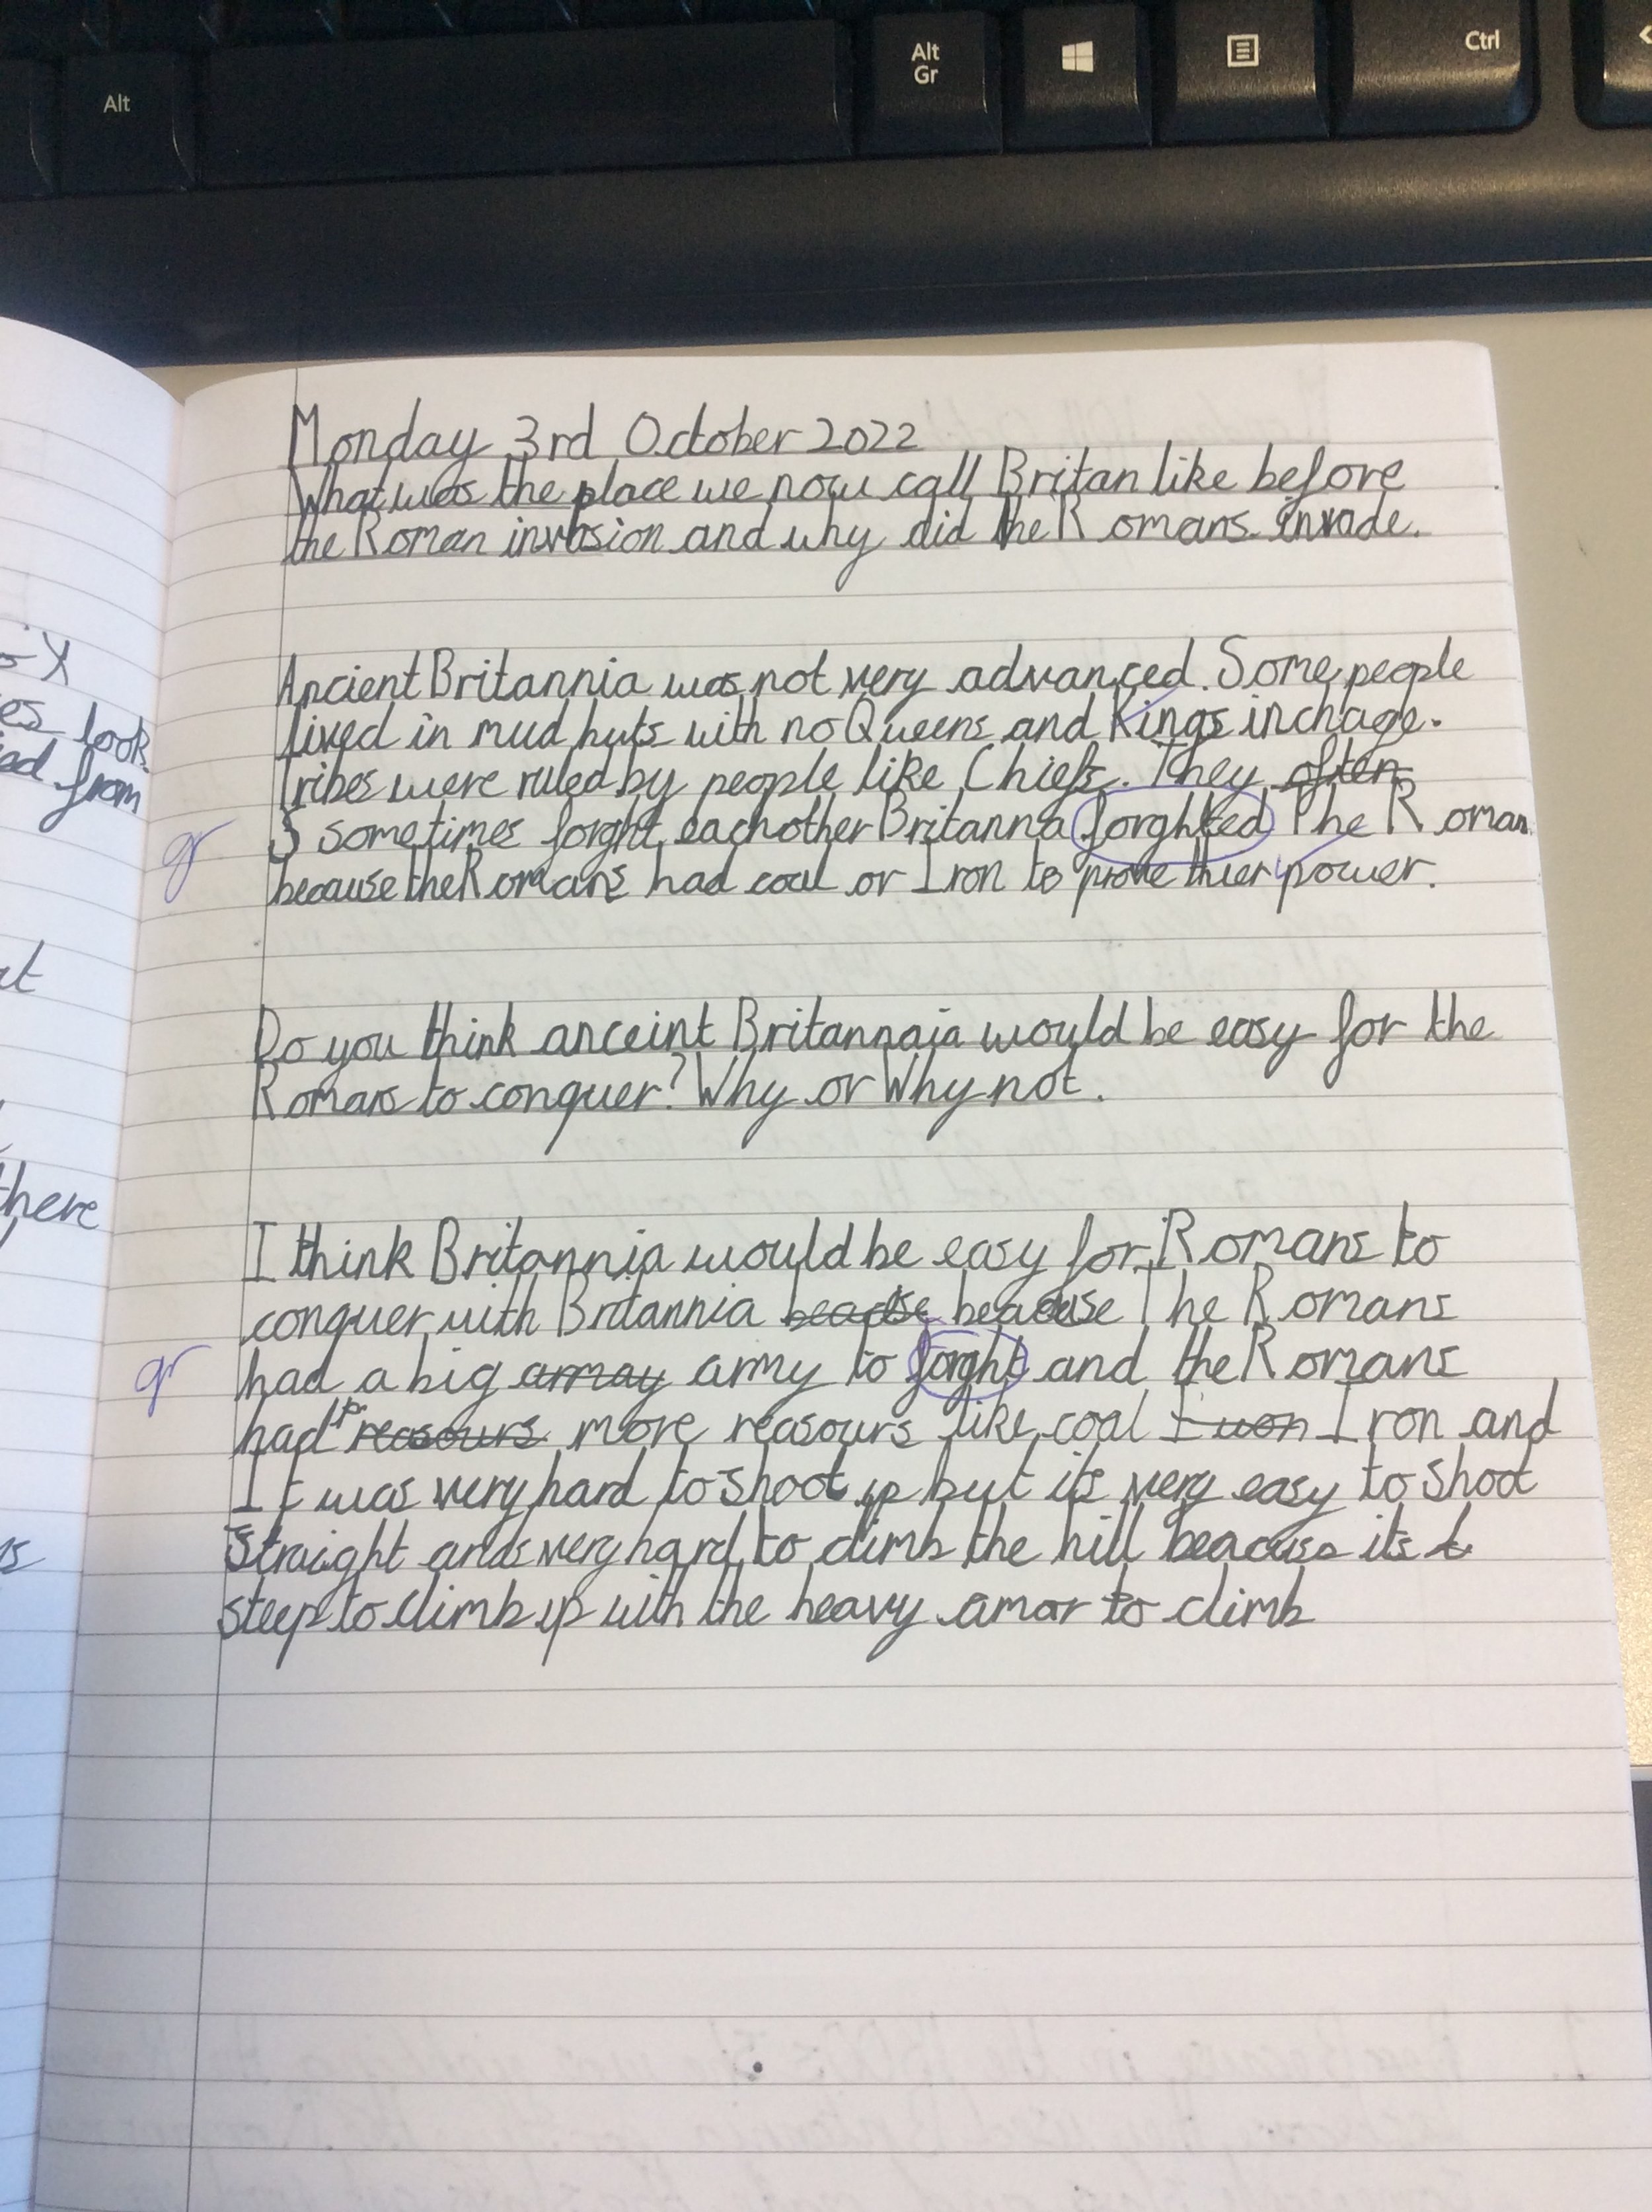 Alt
Alt
Gr
Ctrl
look
from
there
Monday 3rd October 2022
What was the place we now call Britan like before
the Roman invasion and why did the Romans invade.
Ancient Britannia was not very advanced. Some people
lived in mud huts with no Queens and Kings in chage.
Tribes were ruled by people like Chiefs. They often
S sometimes forght eachother Britanna forghted The Roman
gr
because the Romans had coal or Iron to prove thier power.
Do you think anceint Britannaia would be easy for the
Romans to conquer? Why or Why not.
I think Britannia would be easy for Romans to
conquer with Britannia beacuse The Romans
gr
had a big array army to forght and the Romans
had reasours more reasours like coal Iron and
It was very hard to shoot up but its very easy to shoot
Straight ands very hard to climb the hill beacuse its t
steep to climb up with the heavy amor to climb